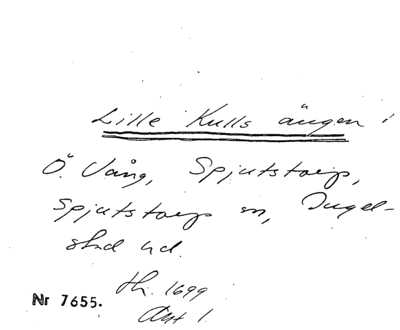 Lille Kulls ängen i
Ö. Vång, Spjutstorp,
Spjutstorp sn, Ingel-
stad hd.
Nr 7655.
th. 1699
Akt 1.